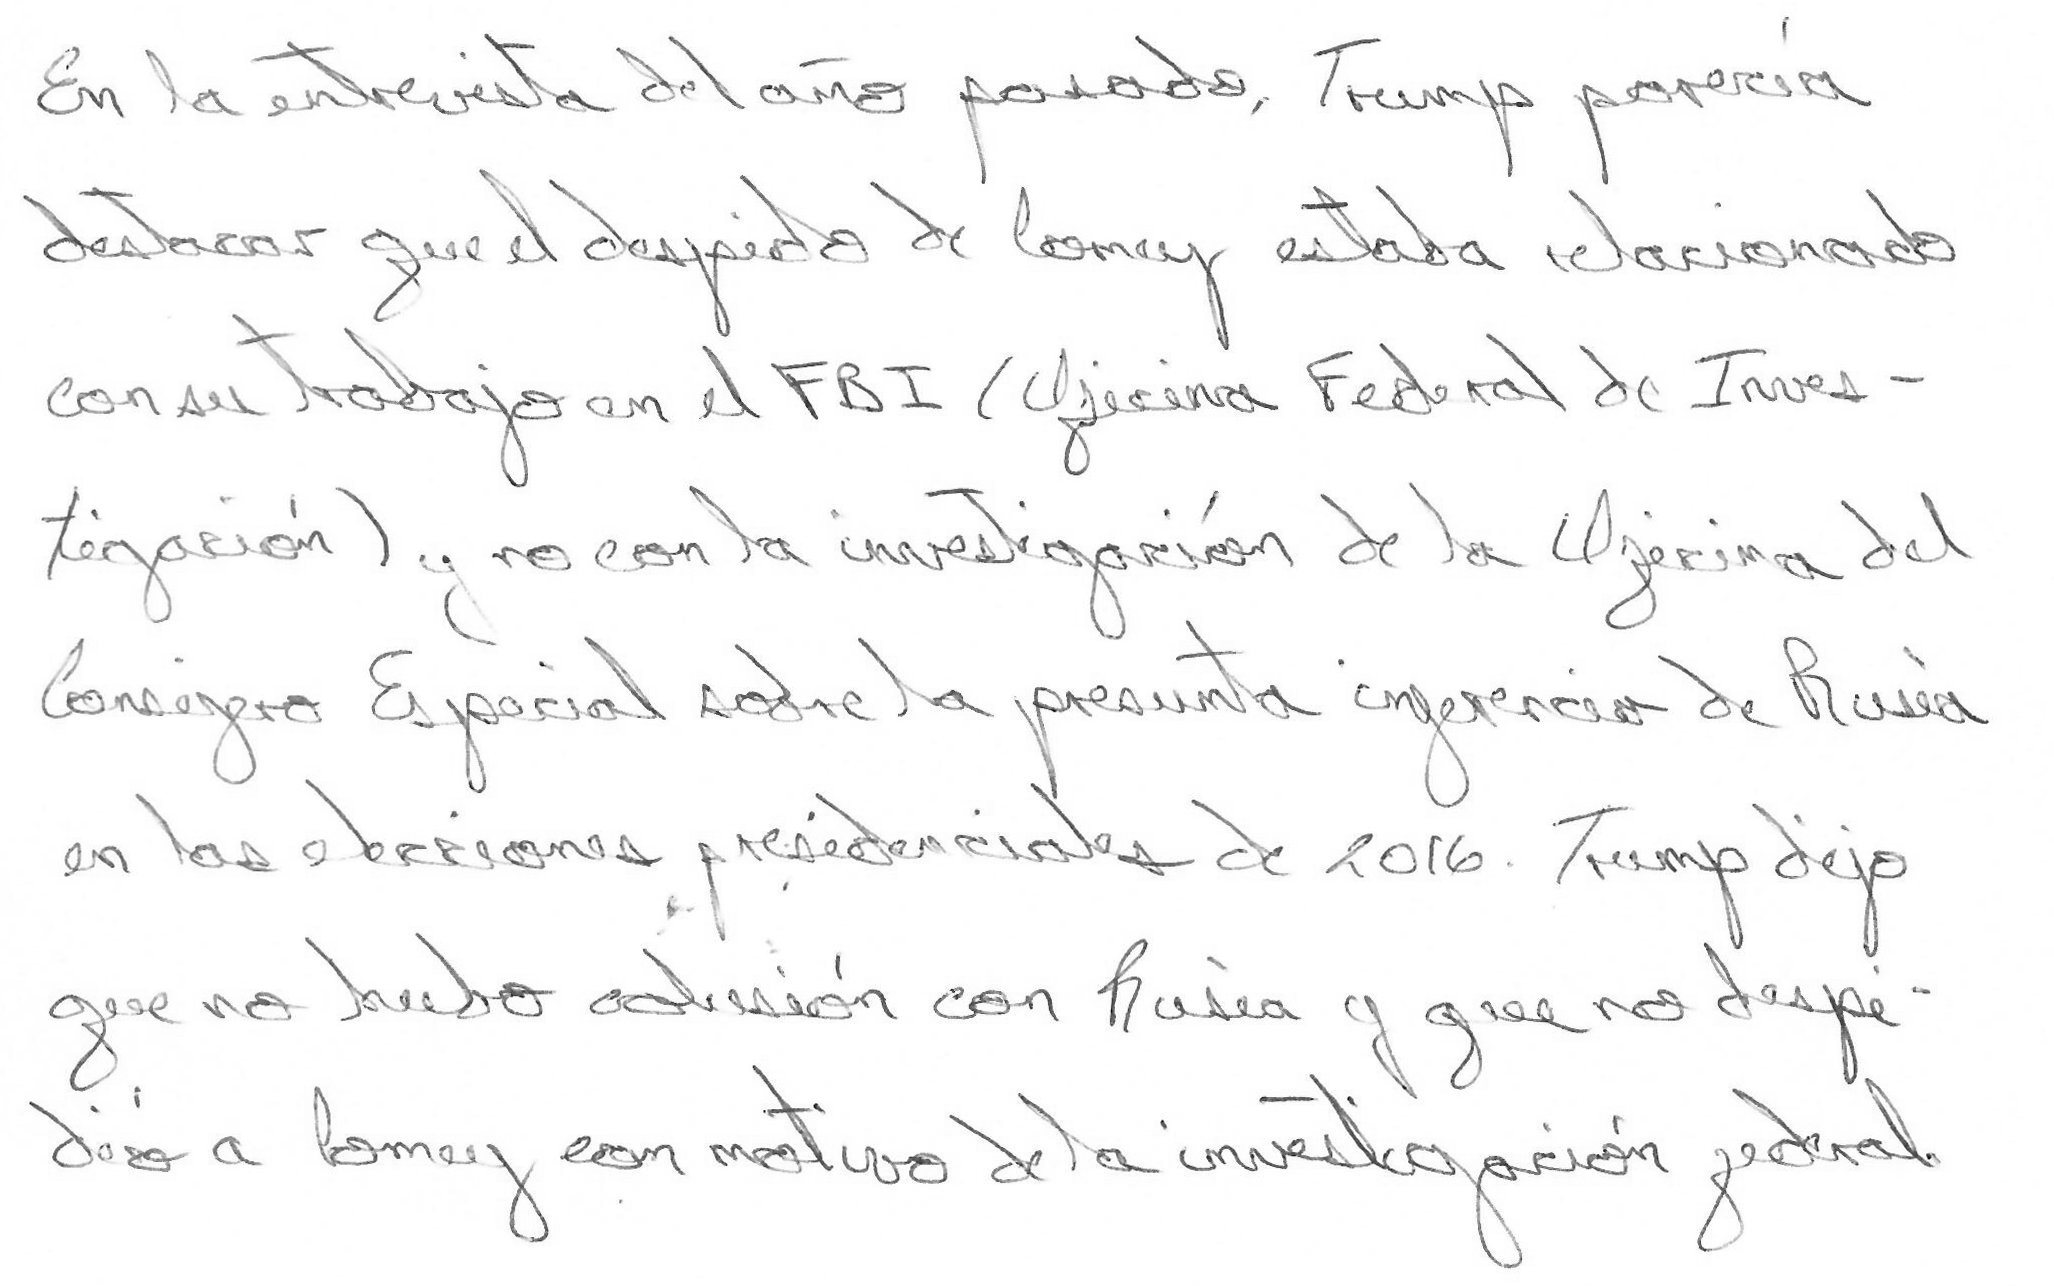 En la entrevista del año pasado, Trump parecía
destacar que el despido de Comey estaba relacionado
con su trabajo en el FBI (Oficina Federal de Inves-
tigación) y no con la investigación de la Oficina del
Consejero Especial sobre la presunta injerencia de Rusia
en las elecciones presidenciales de 2016. Trump dijo
que no hubo colusión con Rusia y que no despi-
dió a Comey con motivo de la investigación federal.